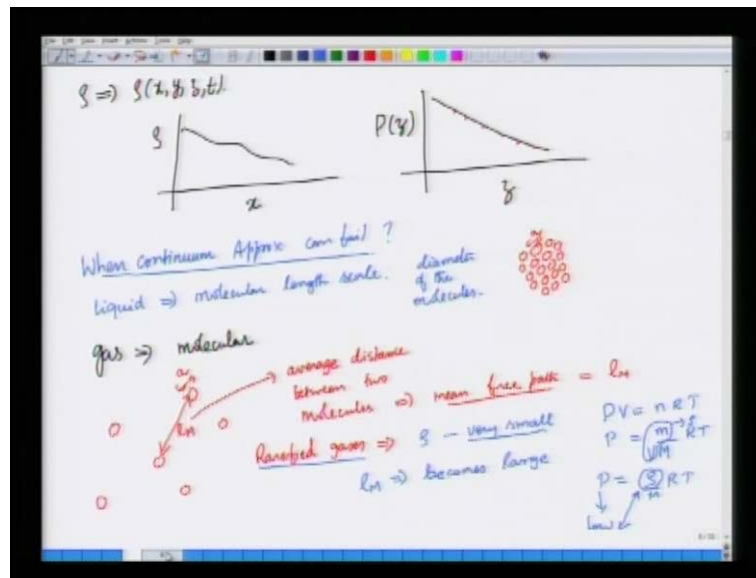 ρ ⇒ ρ(x, y, z, t)
ρ
x
P(z)
z
When continuum Approx can fail ?
Liquid ⇒ molecular length scale.
diameter
of the
molecules.
gas ⇒ molecular
average distance
between two
molecules ⇒ mean free path = l_M
l_M
Rarefied gases ⇒ ρ - very small
l_M ⇒ becomes large
PV = nRT
P = m/VM RT
ρ
P = ρ/M RT
low